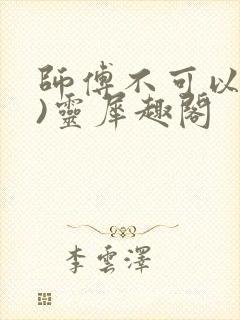 師傅不可以
)靈犀趣閣
李雲澤